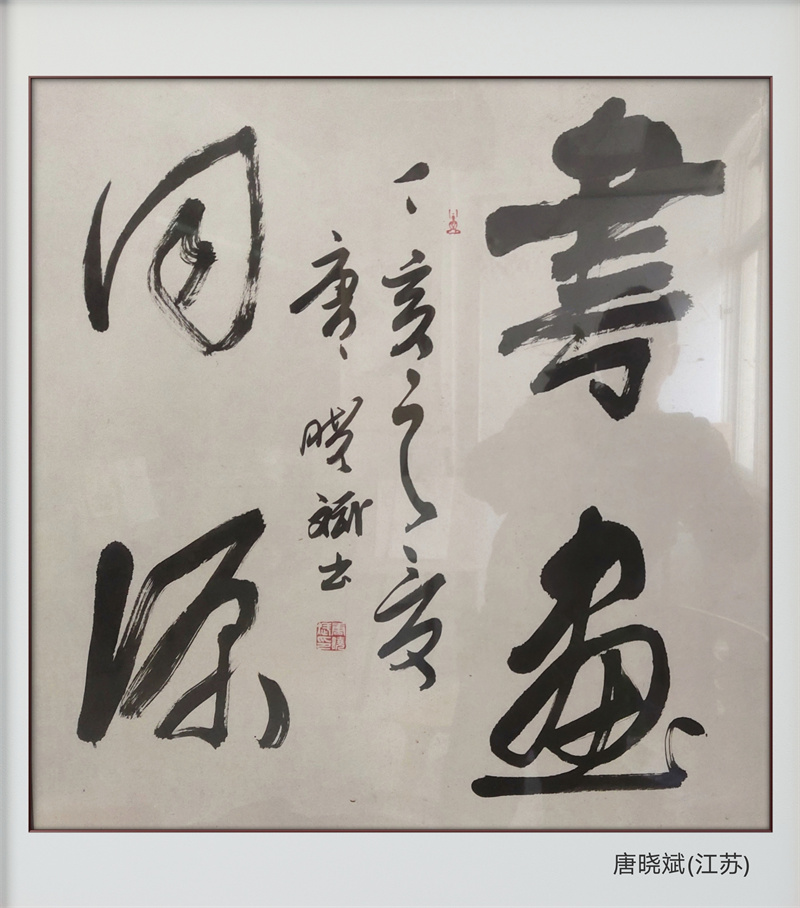 書畫
同源
丁亥之夏
唐晓斌书
唐晓斌(江苏)